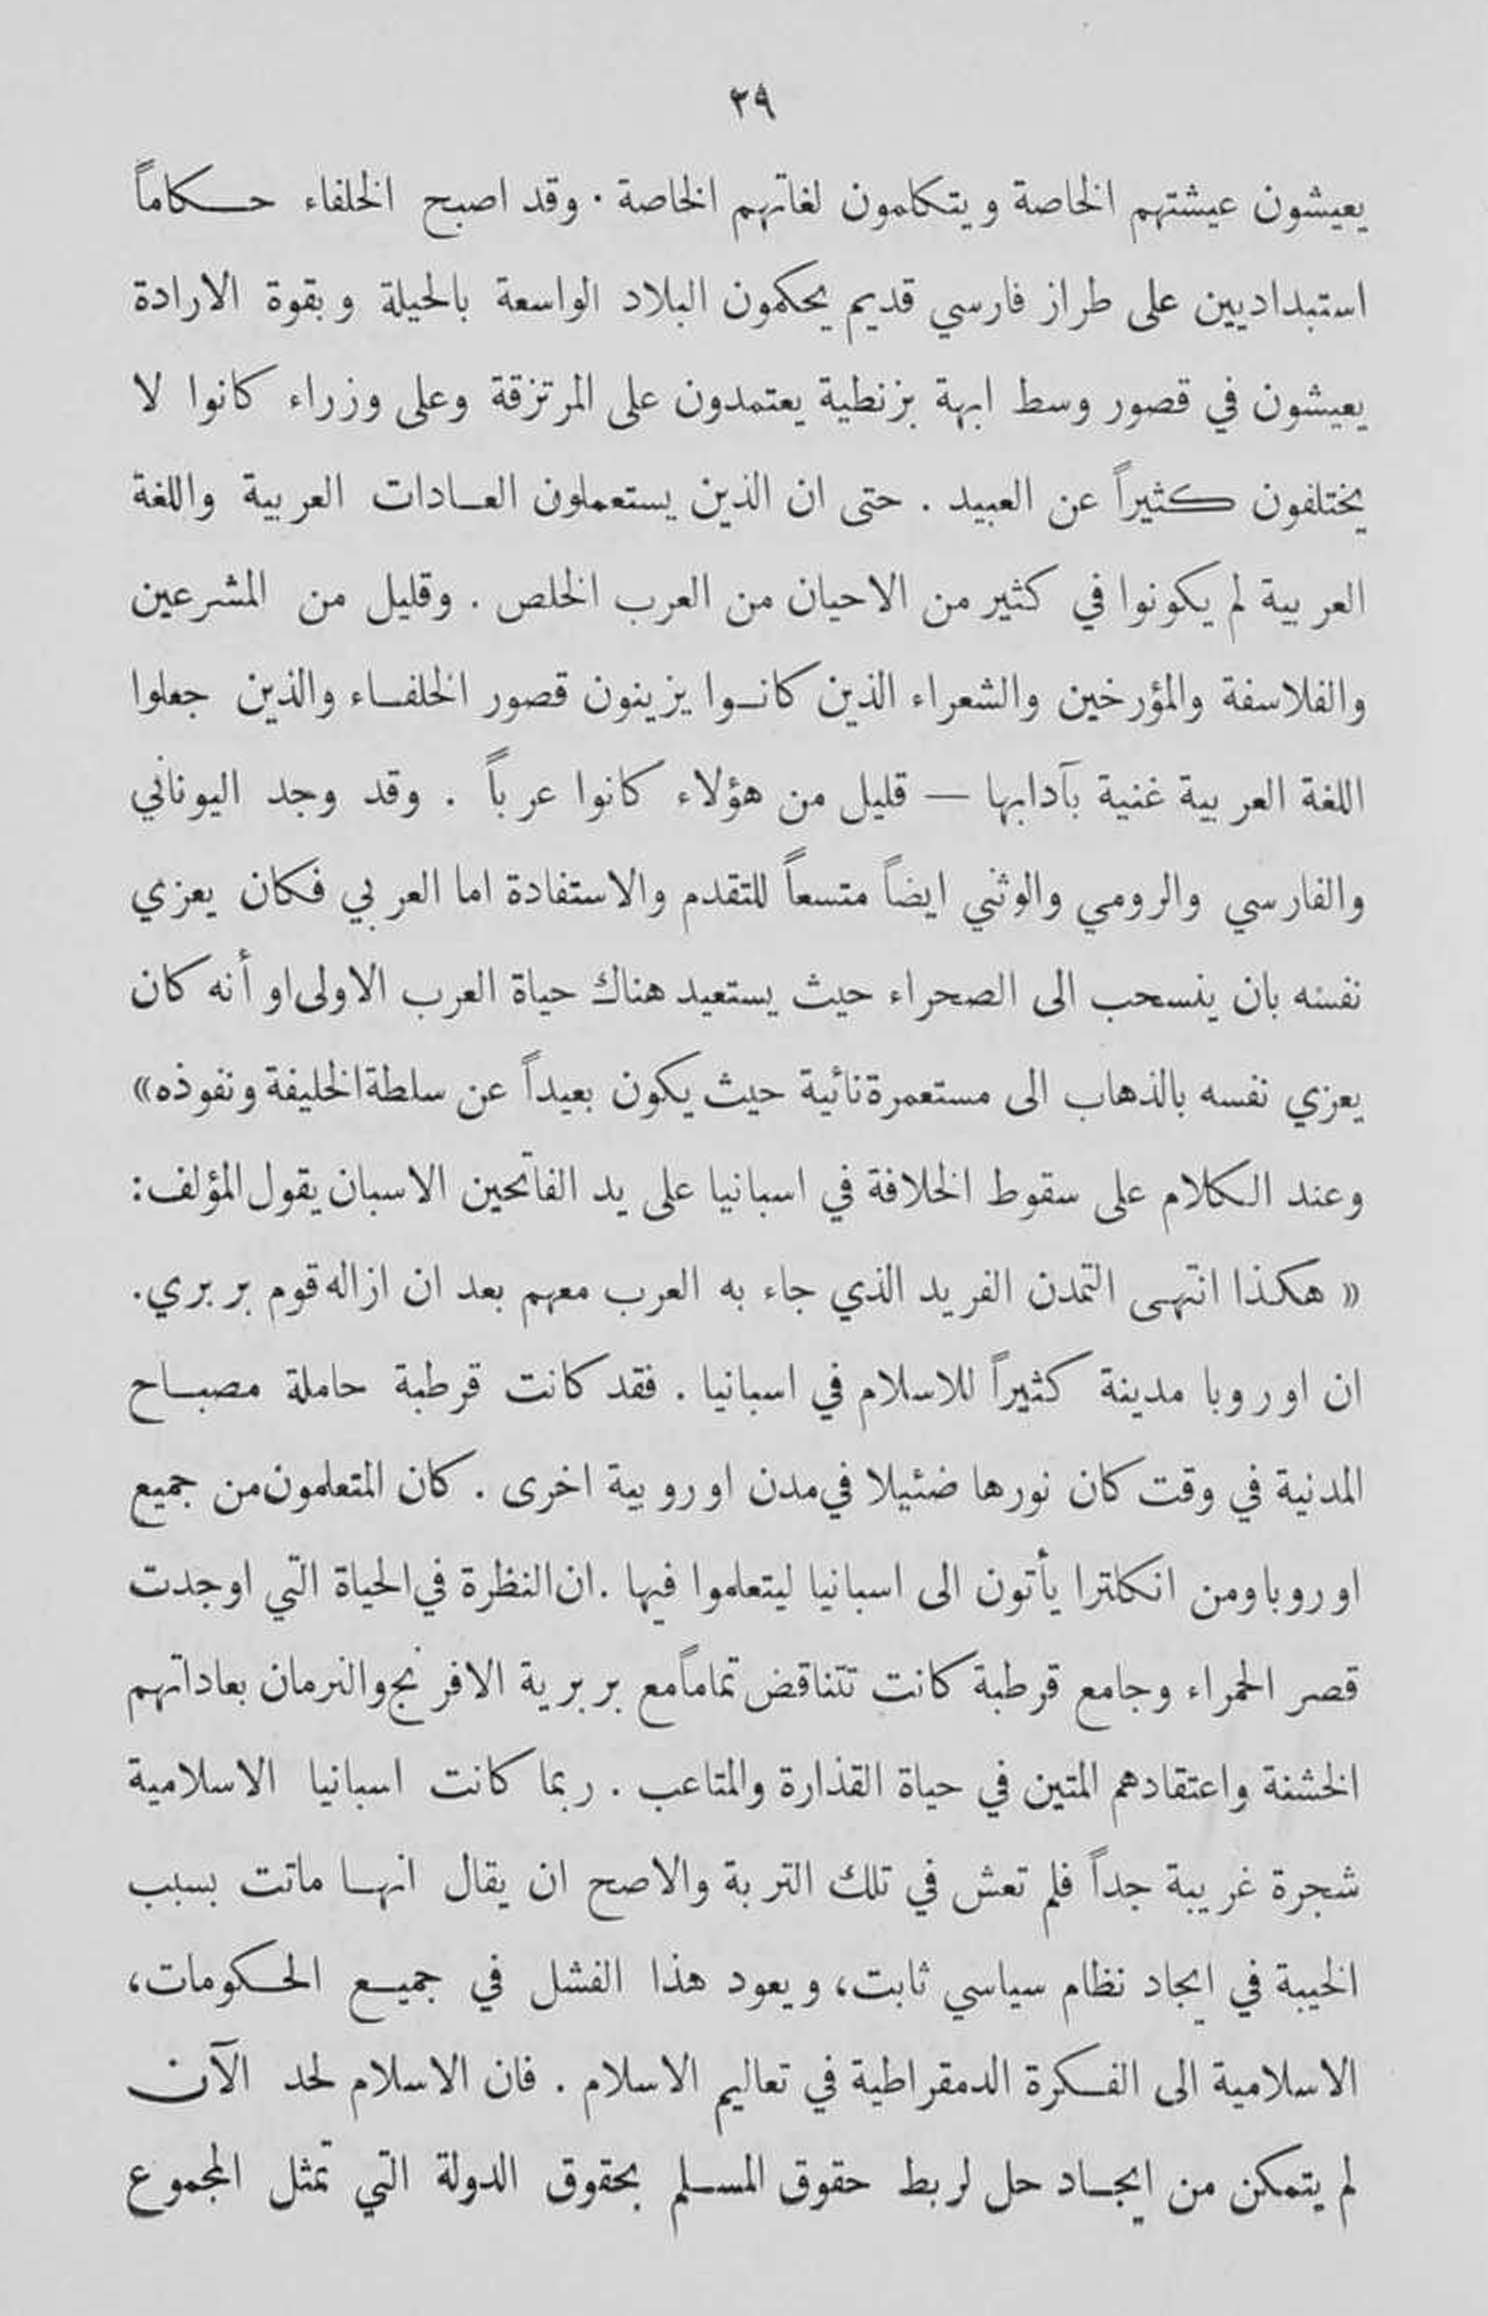 ٣٩
يعيشون عيشتهم الخاصة ويتكلمون لغاتهم الخاصة · وقد اصبح الخلفاء حكاماً
استبداديين على طراز فارسي قديم يحكمون البلاد الواسعة بالحيلة وبقوة الارادة
يعيشون في قصور وسط ابهة بزنطية يعتمدون على المرتزقة وعلى وزراء كانوا لا
يختلفون كثيراً عن العبيد . حتى ان الذين يستعملون العادات العربية واللغة
العربية لم يكونوا في كثير من الاحيان من العرب الخلص . وقليل من المشرعين
والفلاسفة والمؤرخين والشعراء الذين كانوا يزينون قصور الخلفاء والذين جعلوا
اللغة العربية غنية بآدابها — قليل من هؤلاء كانوا عرباً . وقد وجد اليوناني
والفارسي والرومي والوثني ايضاً متسعاً للتقدم والاستفادة اما العربي فكان يعزي
نفسه بان ينسحب الى الصحراء حيث يستعيد هناك حياة العرب الاولى او أنه كان
يعزي نفسه بالذهاب الى مستعمرة نائية حيث يكون بعيداً عن سلطة الخليفة ونفوذه»
وعند الكلام على سقوط الخلافة في اسبانيا على يد الفاتحين الاسبان يقول المؤلف:
« هكذا انتهى التمدن الفريد الذي جاء به العرب معهم بعد ان ازاله قوم بربري.
ان اوروبا مدينة كثيراً للاسلام في اسبانيا . فقد كانت قرطبة حاملة مصباح
المدنية في وقت كان نورها ضئيلا في مدن اوروبية اخرى . كان المتعلمون من جميع
اوروبا ومن انكلترا يأتون الى اسبانيا ليتعلموا فيها . ان النظرة في الحياة التي اوجدت
قصر الحمراء وجامع قرطبة كانت تتناقض تماماً مع بربرية الافرنج والنرمان بعاداتهم
الخشنة واعتقادهم المتين في حياة القذارة والمتاعب . ربما كانت اسبانيا الاسلامية
شجرة غريبة جداً فلم تعش في تلك التربة والاصح ان يقال انها ماتت بسبب
الخيبة في ايجاد نظام سياسي ثابت، ويعود هذا الفشل في جميع الحكومات،
الاسلامية الى الفكرة الدمقراطية في تعاليم الاسلام . فان الاسلام لحد الآن
لم يتمكن من ايجاد حل لربط حقوق المسلم بحقوق الدولة التي تمثل المجموع